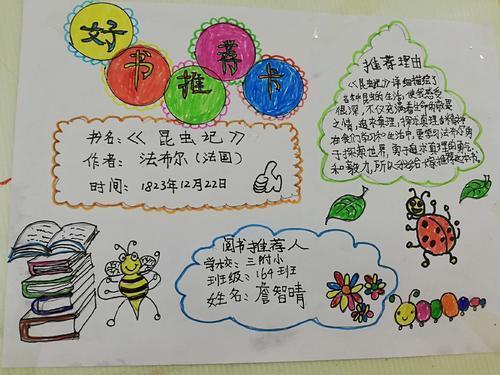 好书推荐卡
书名：《昆虫记》
作者：法布尔（法国）
时间：1823年12月22日
推荐理由
《昆虫记》详细描绘了
各种昆虫的生活，使我感受
很深，不仅充满着生命的敬畏
之情，追求真理，探求真理的精神
在我们学习和生活中，更要向法布尔勇
于探索世界，勇于追求真理的勇气
和毅力，所以我给你推荐这本书。
图书推荐人
学校：三附小
班级：164班
姓名：詹智晴